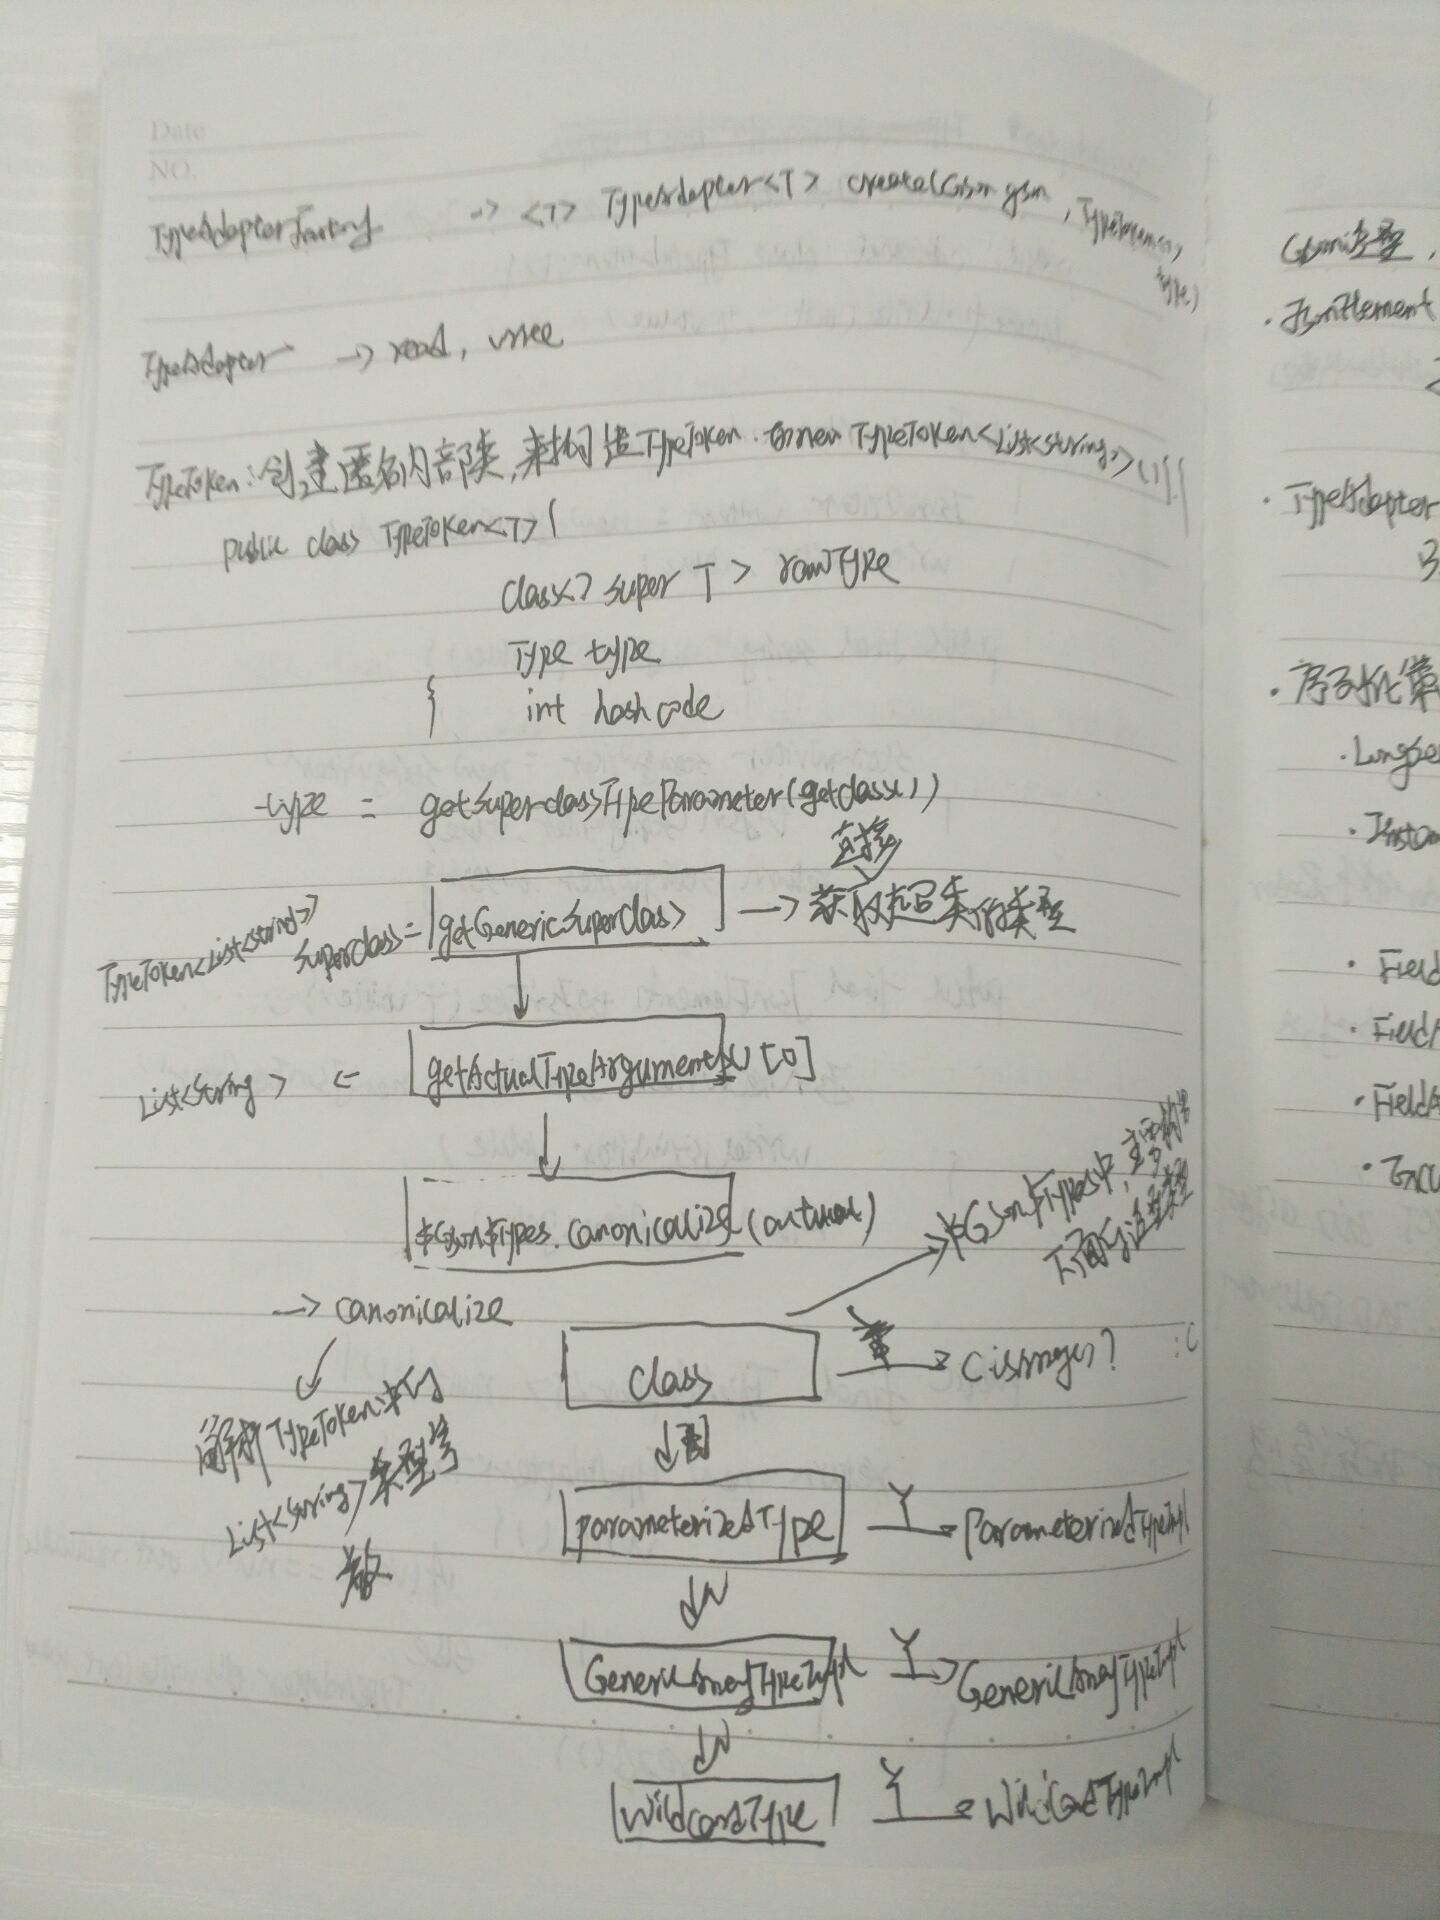 Date
NO.
TypeAdapterFactory -> <T> TypeAdapter<T> create(Gson gson, TypeToken<T>
type)
TypeAdapter -> read, write
TypeToken: 创建匿名内部类,来构造TypeToken. 如new TypeToken<List<String>>(){}
public class TypeToken<T>{
Class<? super T> rawType
Type type
int hashcode
}
type = getSuperclassTypeParameter(getClass())
直接
TypeToken<List<String>> superclass= getGenericSuperClass -> 获取超类的类型
List<String> <- getActualTypeArguments() [0]
$Gson$Types.canonicalize(actual)
$Gson$Types中,
下面的这些类型
-> canonicalize
Class C isArray?
解析TypeToken中的
List<String>类型等
parameterizedType Y ParameterizedTypeImpl
N
GenericArrayTypeImpl Y -> GenericArrayTypeImpl
N
WildcardType Y WildcardTypeImpl
Gson类型,
· JsonElement
· TypeAdapter
· 序列化策
· LongSe
· Instan
· Field
· FieldA
· FieldA
· Exclu